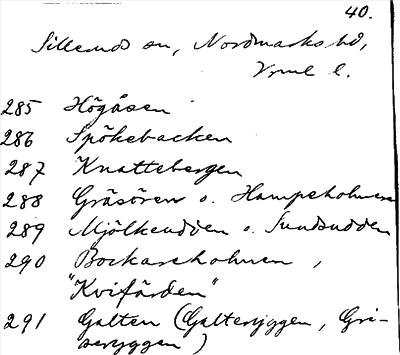 40.
Sillerud sn, Nordmarks hd,
Vrml l.
285 Högåsen
286 Spökebacken
287 Knattebergen
288 Gräsören o. Hampeholmen
289 Mjölkeudden o. Sundsudden
290 Bockareholmen,
"Kvifärden"
291 Galten (Galteryggen, Gri-
seryggen)